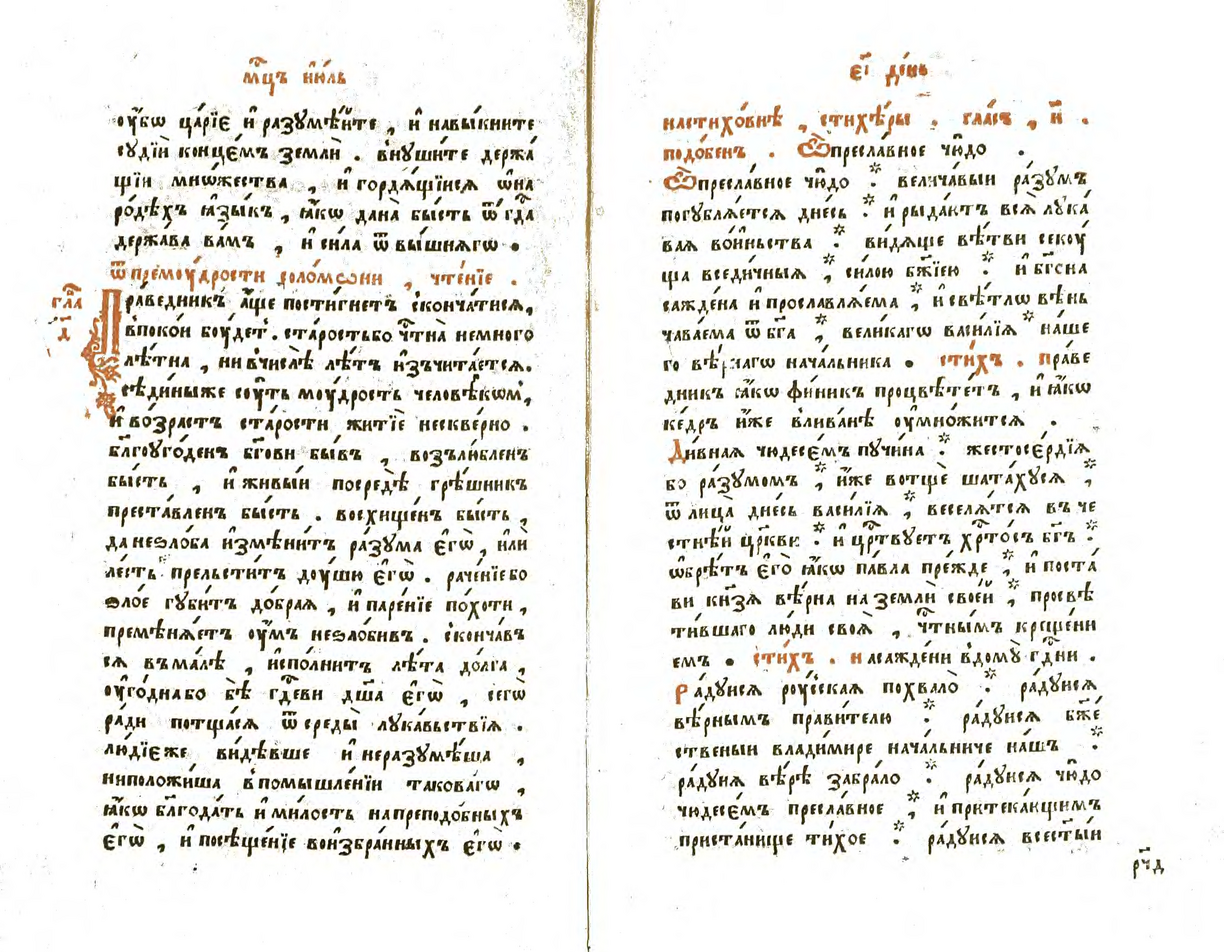 мⷭ҇цъ і҆ю́ль
оу҆́бѡ ца́рїє и҆ разꙋмѣ́йте , и҆ навы́кните
сꙋдїи̑ конце́мъ землѝ . внꙋши́те держа́
щїи мно́жества , и҆ гордѧ́щїисѧ ѡ҆на
ро́дѣхъ ꙗ҆зы́къ , ꙗ҆́кѡ дана̀ бы́сть ѿ гдⷭ҇а
держа́ва ва́мъ , и҆ си́ла ѿ вы́шнѧгѡ .
ѿ премоу́дрости соломѡни , чте́нїе .
гла
д҃
Пра́ведникъ а҆́ще пости́гнетъ сконча́тисѧ,
впоко́и боу́детъ . ста́ростьбо чⷭ҇тна̀ немно́го
лѣ́тна , ни вчислѣ̀ лѣ́тъ и҆зъчита́етсѧ.
сѣди́ныже соу́ть моу́дрость человѣ́кѡмъ,
и҆ во́зрастъ ста́рости житїѐ нескве́рно .
бл҃гоуго́денъ бг҃ови бы́въ , возълю́бленъ
бы́сть , и҆ живы́и посредѣ̀ грѣ́шникъ
преста́вленъ бы́сть . восхище́нъ бы́сть ,
да неѕло́ба и҆змѣни́тъ ра́зꙋма є҆гѡ̀ , и҆лѝ
ле́сть прельсти́тъ до́ушю є҆гѡ̀ . раче́нїебо
ѕло́е гꙋби́тъ до́браѧ , и҆ паре́нїе по́хоти ,
премѣнѧ́етъ оу҆́мъ неѕло́бивъ . сконча́въ
сѧ въма́лѣ , и҆спо́лнитъ лѣ́та до́лга ,
оу҆го́днабо бѣ̀ гдⷭ҇еви дш҃а̀ є҆гѡ̀ , сегѡ̀
ра́ди потща́сѧ ѿ среды̀ лꙋка́вьствїѧ .
лю́дїєже ви́дѣвше и҆ неразꙋмѣ́ша ,
ниположи́ша впомышле́нїи такова́гѡ ,
ꙗ҆́кѡ бл҃года́ть и҆ ми́лость напреподо́бныхъ
є҆гѡ̀ , и҆ посѣще́нїе воизбра́нныхъ є҆гѡ̀ .
єі҃ де́нь
настихо́внѣ , стихѣ́ры . гла́съ , и҃ .
подо́бенъ . Ѽ пресла́вное чю́до .
Ѽ пресла́вное чю́до : велича́выи ра́зꙋмъ
погꙋблѧ́етсѧ дне́сь : и҆ рыда́ютъ всѧ̀ лꙋка́
ваѧ во́иньства : ви́дѧще вѣ́тви секоу́
ща вседи́чныѧ , си́лою бж҃їею : и҆ бг҃она
сажде́на и҆ прославлѧ́ема , и҆ свѣ́тлѡ вѣнь
чава́ема ѿ бг҃а , вели́кагѡ васи́лїѧ на́ше
го вѣ́рнагѡ нача́льника . сти́хъ . Пра́ве
дникъ ꙗ҆́кѡ фи́никъ процвѣте́тъ , и҆ ꙗ҆́кѡ
ке́дръ и҆́же влива́нѣ оу҆мно́житсѧ .
Ди́внаѧ чюдесє́мъ пꙋчи́на : жестосе́рдїѧ
бо ра́зꙋмомъ , и҆́же вотщѐ шата́хꙋсѧ ,
ѿ лица̀ дне́сь васи́лїѧ , веселѧ́тсѧ въ че
стнѣ́й цр҃кви : и҆ црⷭ҇твꙋетъ хрⷭ҇то́съ бг҃ъ :
ѡ҆брѣ́тъ є҆го̀ ꙗ҆́кѡ па́вла пре́жде , и҆ поста́
ви кнѧ́зѧ вѣ́рна на землѝ свое́й , просвѣ
ти́вшаго лю́ди своѧ̀ , чⷭ҇тны́мъ креще́ни
емъ . сти́хъ . Насажде́ни вдомꙋ̀ гдⷭ҇ни .
Ра́дꙋисѧ роу́сскаѧ похвало̀ : ра́дꙋисѧ
вѣ́рнымъ прави́телю : ра́дꙋисѧ бж҃е
ственыи влади́мире нача́льниче на́шъ :
ра́дꙋиѧ вѣ́рѣ забра́ло : ра́дꙋисѧ чю́до
чюдесє́мъ пресла́вное , и҆ притека́ющимъ
приста́нище ти́хое : ра́дꙋисѧ всест҃ы́и
рч҃д